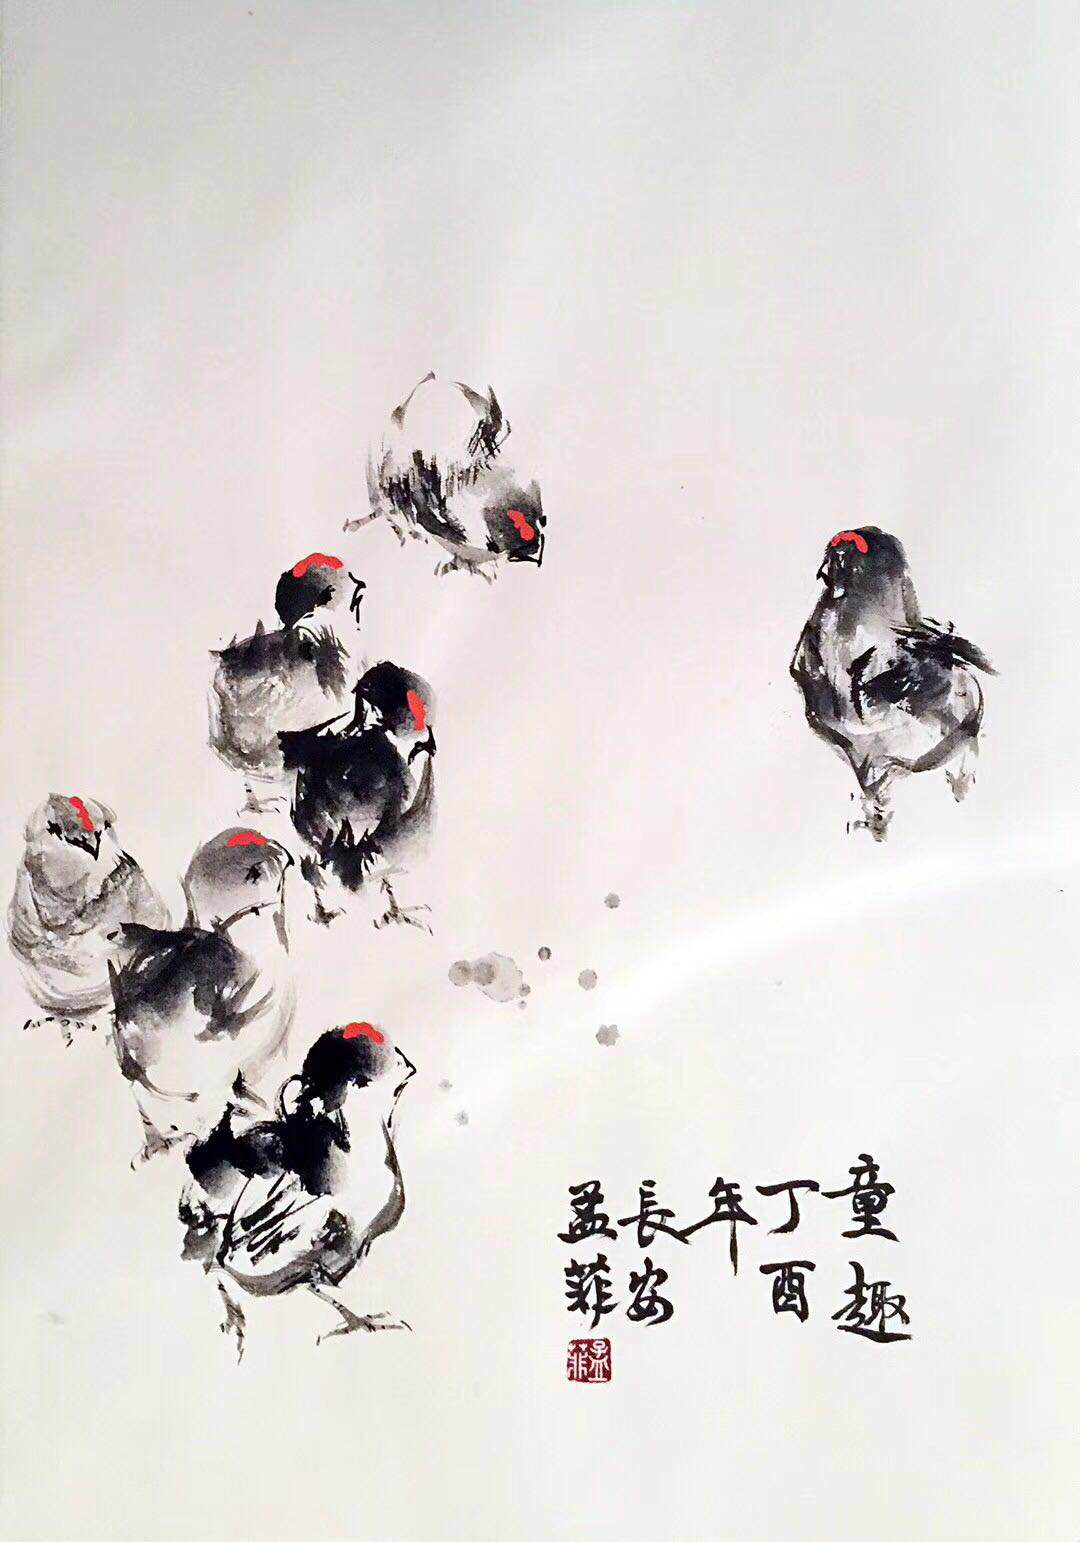 童趣
丁酉
年
長安
孟菲
孟菲